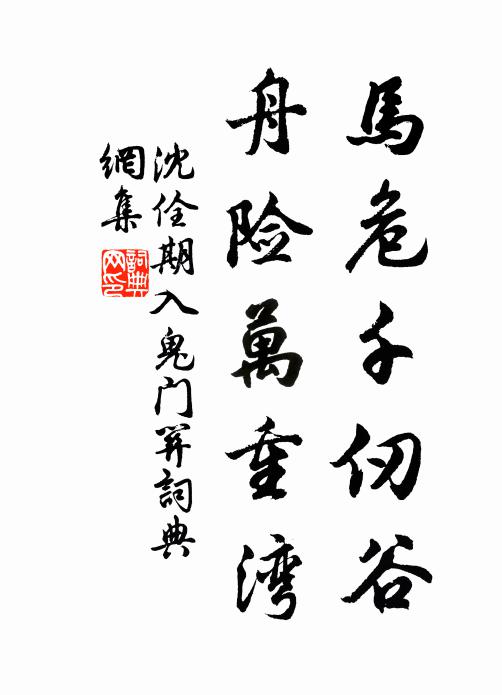 馬危千仞谷
舟险萬重湾
沈佺期入鬼门関詞典
網集
詞典
网印